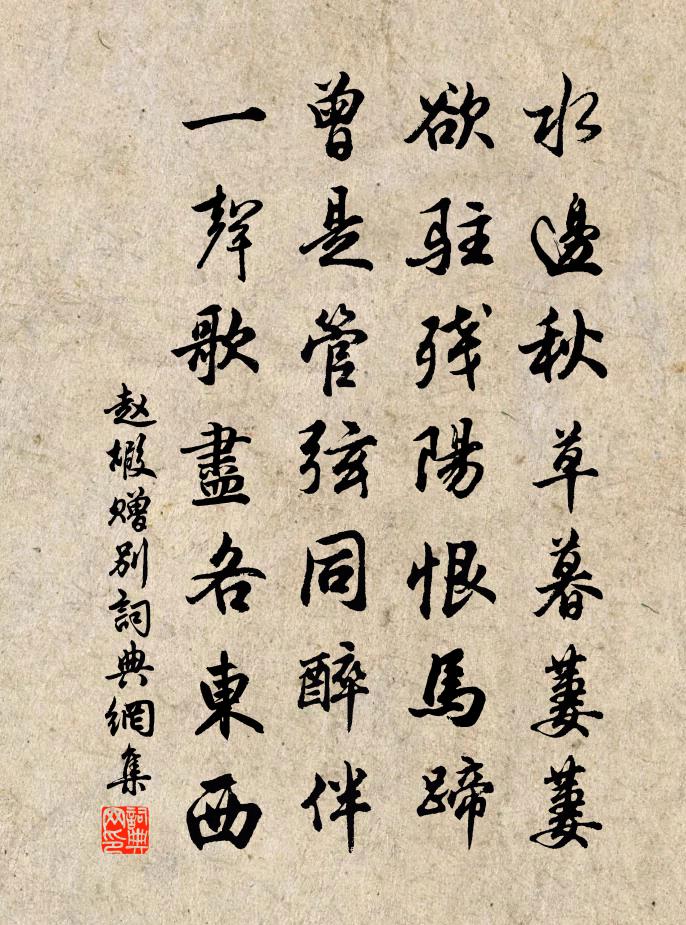 水邊秋草暮萋萋
欲駐殘陽恨馬蹄
曾是管弦同醉伴
一聲歌盡各東西
赵嘏贈別詞典網集
詞典网印